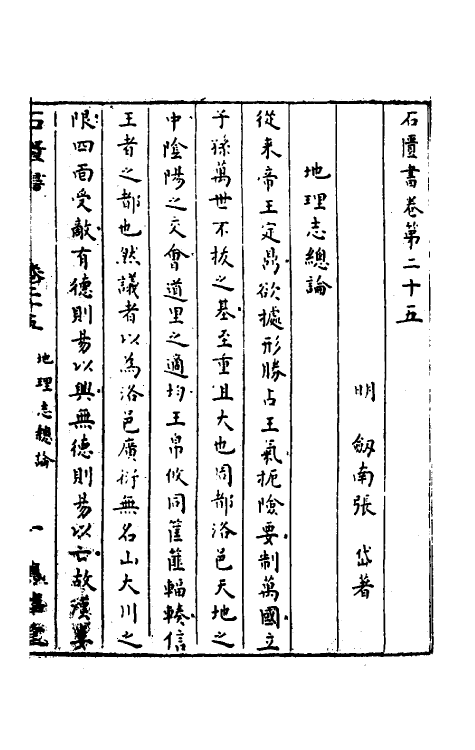 石匱書卷第二十五
明 劔南張 岱著
地理志總論
從来帝王定鼎欲據形勝占王氣扼險要制萬國立
子孫萬世不拔之基至重且大也周都洛邑天地之
中陰陽之交會道里之適均王帛攸同筐篚輻輳信
王者之都也然議者以為洛邑廣衍無名山大川之
限四面受敵有德則易以興無德則易以亡故漢婁
石匱書 卷二十五 地理志總論 一